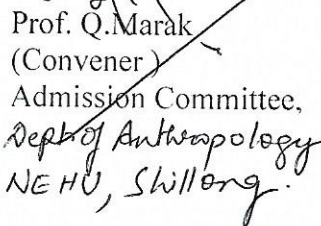 Prof. Q.Marak
(Convener)
Admission Committee,
Dept of Anthropology
NEHU, Shillong.